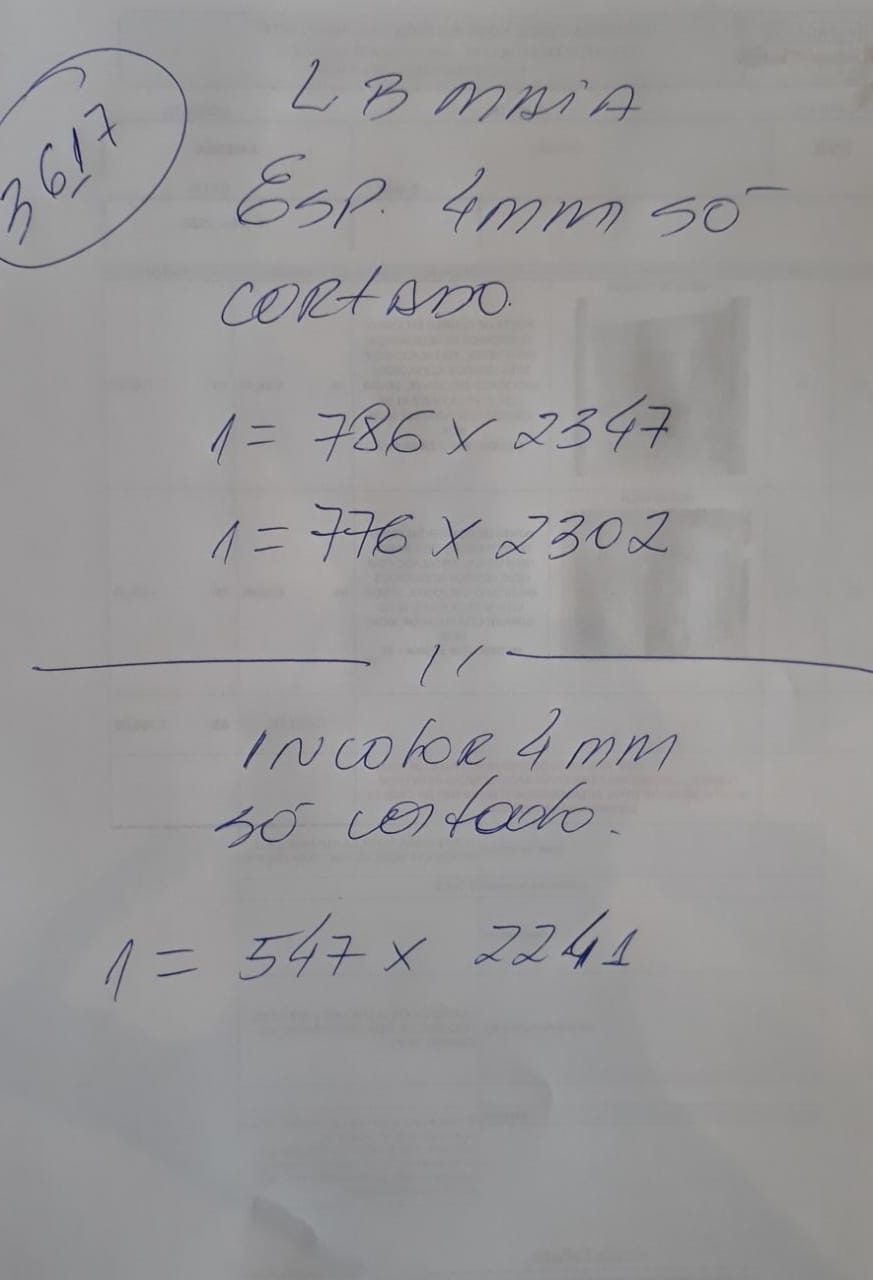 3617
LB MAIA
ESP. 4mm SÓ
CORTADO.
1 = 786 x 2347
1 = 776 x 2302
INCOLOR 4 mm
SÓ cortado.
1 = 547 x 2241